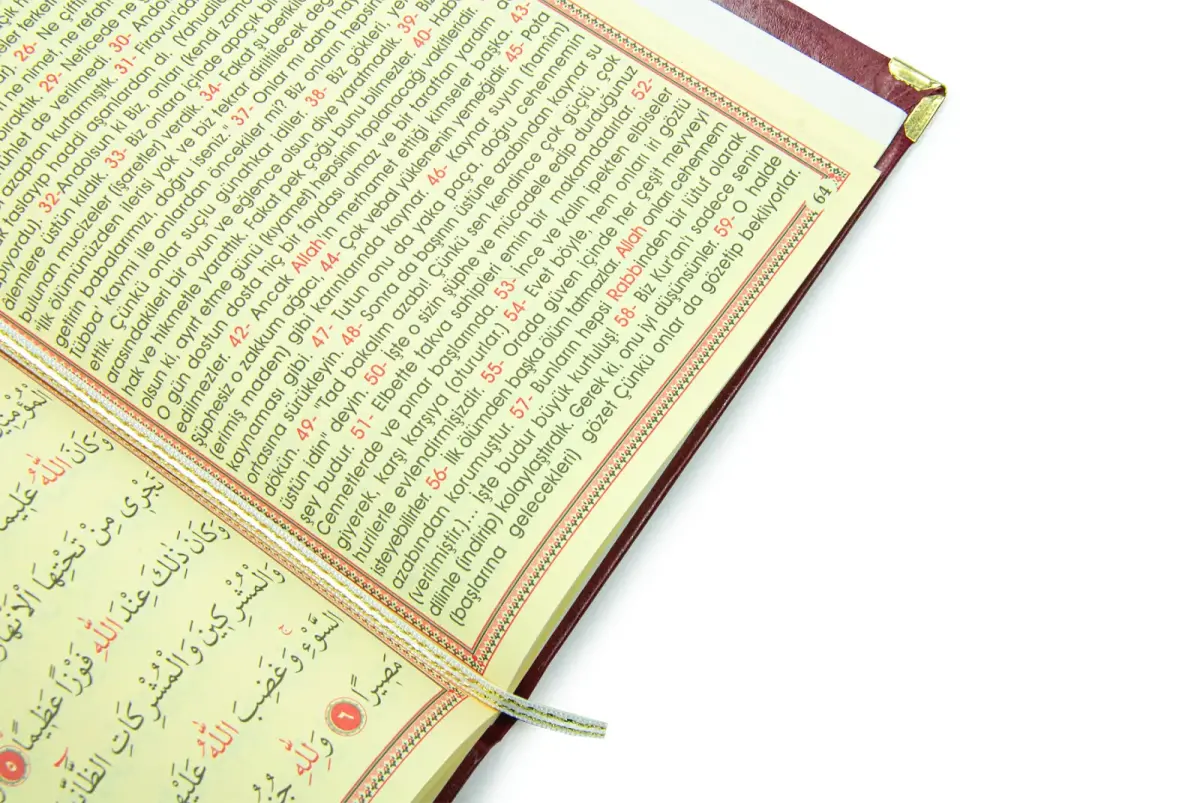 26-
bıraktık. 29- Neticede
mühlet de verilmedi. 30- Andol
azaptan kurtarmıştık. 31- Firavundan
32- Andolsun ki Biz, onları (kendi zama
âlemlere üstün kıldık. 33- Biz onlara içinde apaçık bir
bulunan mucizeler (işaretler) verdik. 34- Fakat şu berikiler de
ilk ölümümüzden ilerisi yok ve biz tekrar diriltilecek değ
getirin babalarımızı, doğru iseniz." 37- Onlar mı daha ha
Tübba kavmi ile onlardan öncekiler mi? Biz onların hepsin
ettik. Çünkü onlar suçlu günahkar idiler. 38- Biz gökleri
arasındakileri bir oyun ve eğlence olsun diye yaratmadık. 39- Bi
hak ve hikmetle yarattık. Fakat pek çoğu bunu bilmezler. 40- Ha
olsun ki, ayırt etme günü (kıyamet) hepsinin toplanacağı vakitleridir.
O gün dostun dosta hiç bir faydası olmaz ve bir taraftan yardım da
edilmezler. 42- Ancak Allah'ın merhamet ettiği kimseler başka. 43-
Şüphesiz o zakkum ağacı, 44- Çok vebal yüklenenin yemeğidir. 45- Pota
(erimiş maden) gibi karınlarında kaynar. 46- Kaynar suyun (hamim)
kaynaması gibi. 47- Tutun onu da yaka paça, doğru cehennemin
ortasına sürükleyin. 48- Sonra da başının üstüne azabından kaynar su
dökün. 49- "Tad bakalım azabı! Çünkü sen kendince çok güçlü, çok
üstün idin" deyin. 50- İşte o sizin şüphe ve mücadele edip durduğunuz
şey budur. 51- Elbette takva sahipleri emin bir makamdadırlar. 52-
Cennetlerde ve pınar başlarında. 53- İnce ve kalın ipekten elbiseler
giyerek, karşı karşıya (otururlar.) 54- Evet böyle, hem onları iri gözlü
hurilerle evlendirmişizdir. 55- Orada güven içinde her çeşit meyveyi
isteyebilirler. 56- İlk ölümden başka ölüm tatmazlar. Allah onları cehennem
azabından korumuştur. 57- Bunların hepsi Rabbinden bir lütuf olarak
(verilmiştir.)... İşte budur büyük kurtuluş! 58- Biz Kur'an'ı sadece senin
dilinle (indirip) kolaylaştırdık. Gerek ki, onu iyi düşünsünler. 59- O halde
(başlarına gelecekleri) gözet Çünkü onlar da gözetip bekliyorlar.
64
وَكَانَ اللّٰهُ عَلٖيمًا
تَجْرٖى مِنْ تَحْتِهَا الْاَنْهَارُ
وَكَانَ ذٰلِكَ عِنْدَ اللّٰهِ فَوْزًا عَظٖيمًا ٥
وَالْمُشْرِكٖينَ وَالْمُشْرِكَاتِ الظَّٓانّٖينَ
السَّوْءِ وَغَضِبَ اللّٰهُ عَلَيْهِ
مَصٖيرًا ٦ وَلِلّٰهِ